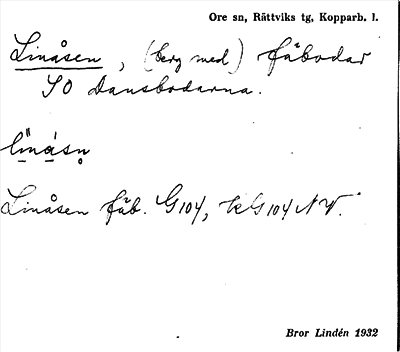 Ore sn, Rättviks tg, Kopparb. l.
Linåsen, (berg med) fäbodar
SO Dansbodarna.
Linåsen fäb. G104, kG104NV.
Bror Lindén 1932